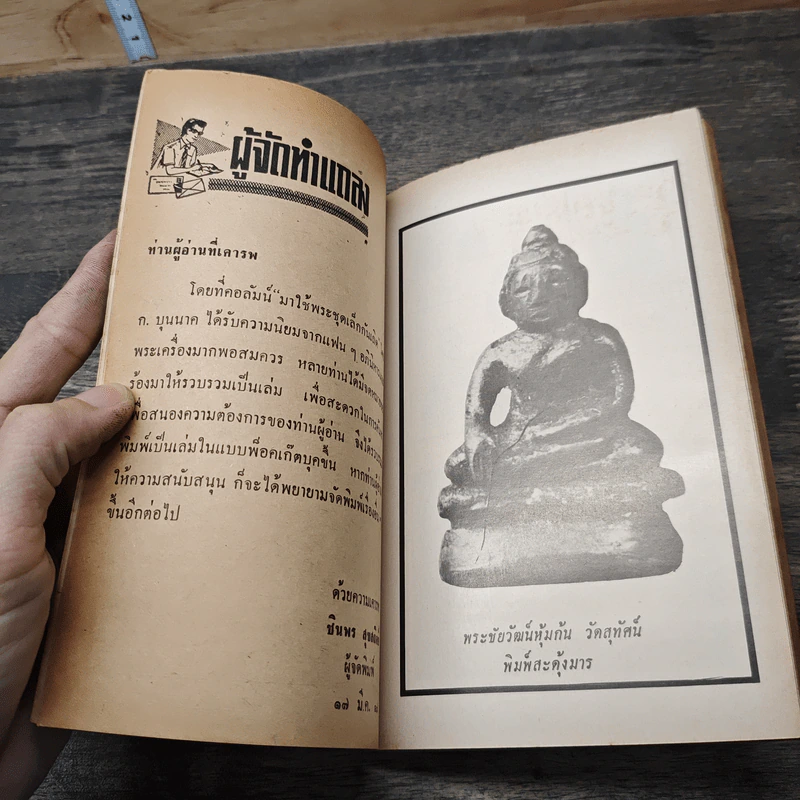 ผู้จัดทำแถลง
ท่านผู้อ่านที่เคารพ
โดยที่คอลัมน์ "มาใช้พระชุดเล็กกันเถิด"
ก. บุนนาค ได้รับความนิยมจากแฟน ๆ
พระเครื่องมากพอสมควร หลายท่านได้มี
ร้องมาให้รวบรวมเป็นเล่ม เพื่อสะดวกในการ
เพื่อสนองความต้องการของท่านผู้อ่าน จึงได้
พิมพ์เป็นเล่มในแบบพ็อคเก๊ตบุคขึ้น หาก
ให้ความสนับสนุน ก็จะได้พยายามจัดพิมพ์เรื่อง
ขึ้นอีกต่อไป
ด้วยความเคารพ
ชินพร
ผู้จัดพิมพ์
๑๗ มี.ค.
พระชัยวัฒน์หุ้มก้น วัดสุทัศน์
พิมพ์สะดุ้งมาร
2